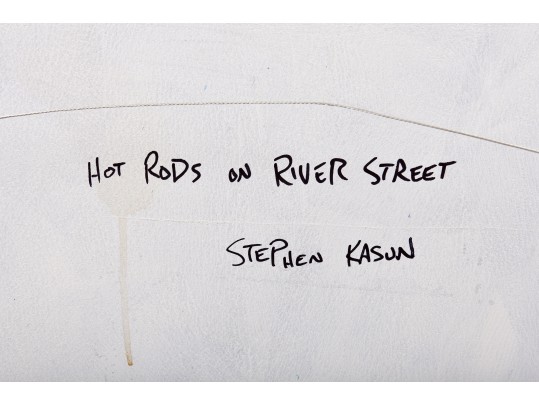 HOT RODS ON RIVER STREET
STEPHEN KASUN